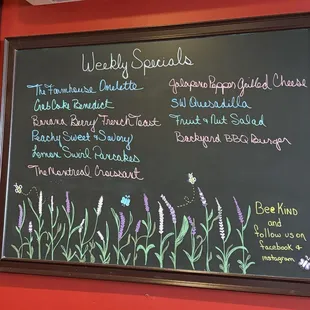 Weekly Specials
The Farmhouse Omelette
Crab Cake Benedict
Banana Berry French Toast
Peachy Sweet & Savory
Lemon Swirl Pancakes
The Montreal Croissant
Jalapeno Popper Grilled Cheese
SW Quesadilla
Fruit & Nut Salad
Backyard BBQ Burger
Bee Kind
and
follow us on
facebook &
instagram